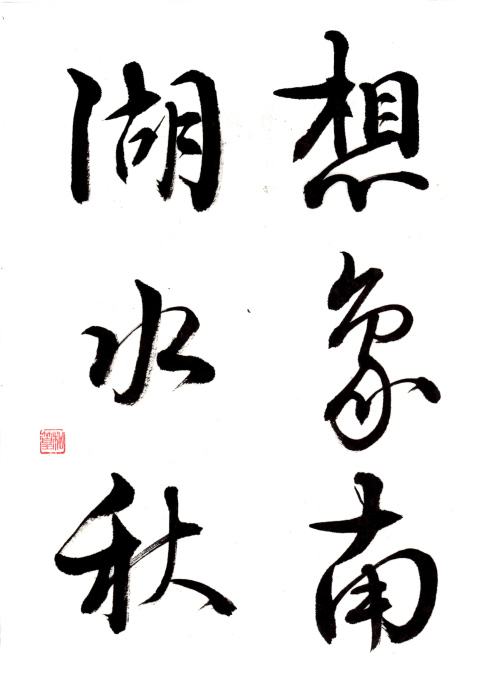 想象南
湖水秋